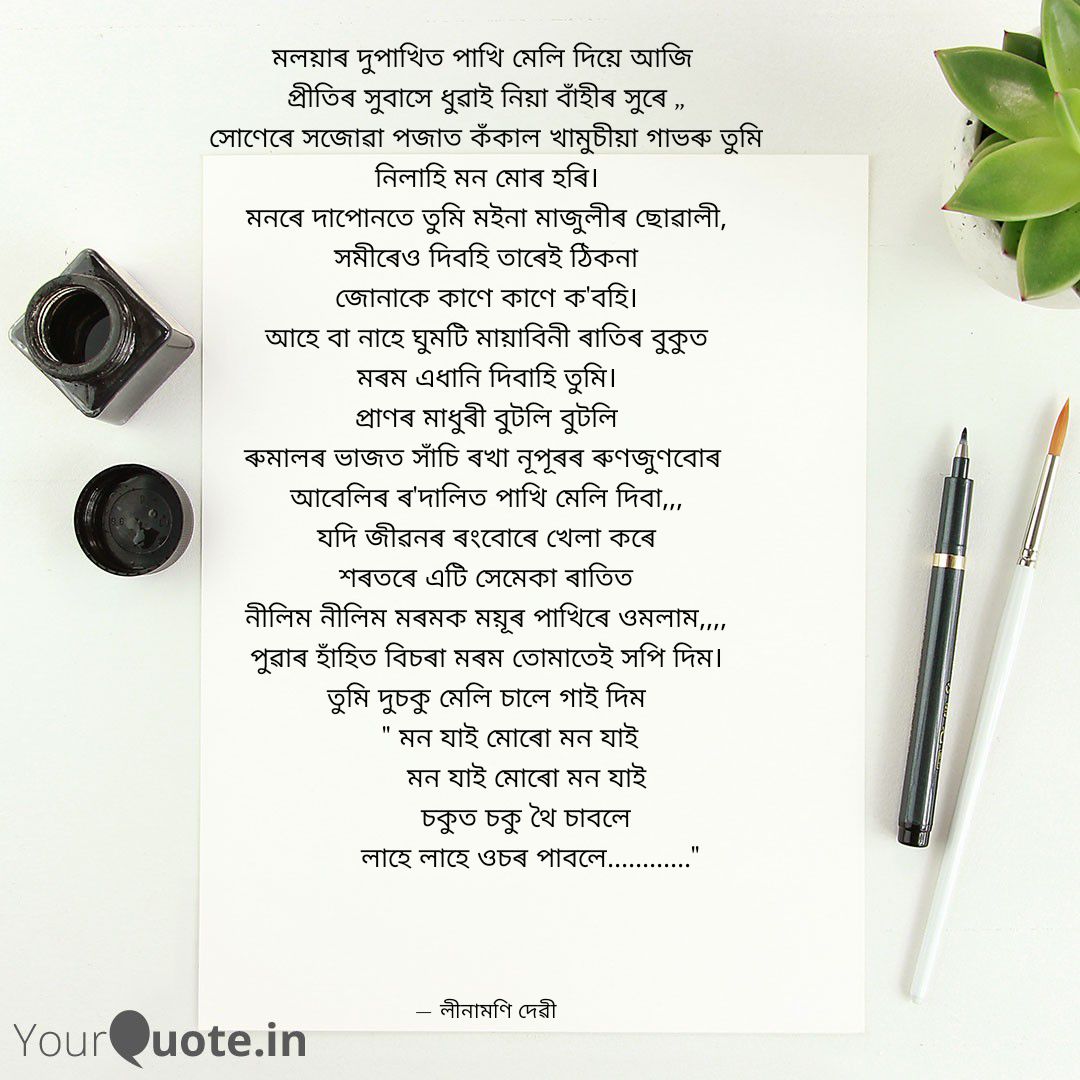 মলয়াৰ দুপাখিত পাখি মেলি দিয়ে আজি
প্ৰীতিৰ সুবাসে ধুৱাই নিয়া বাঁহীৰ সুৰে ,,
সোণেৰে সজোৱা পজাত কঁকাল খামুচীয়া গাভৰু তুমি
নিলাহি মন মোৰ হৰি।
মনৰে দাপোনতে তুমি মইনা মাজুলীৰ ছোৱালী,
সমীৰেও দিবহি তাৰেই ঠিকনা
জোনাকে কাণে কাণে ক'বহি।
আহে বা নাহে ঘুমটি মায়াবিনী ৰাতিৰ বুকুত
মৰম এধানি দিবাহি তুমি।
প্ৰাণৰ মাধুৰী বুটলি বুটলি
ৰুমালৰ ভাজত সাঁচি ৰখা নূপূৰৰ ৰুণজুণবোৰ
আবেলিৰ ৰ'দালিত পাখি মেলি দিবা,,,
যদি জীৱনৰ ৰংবোৰে খেলা কৰে
শৰতৰে এটি সেমেকা ৰাতিত
নীলিম নীলিম মৰমক ময়ূৰ পাখিৰে ওমলাম,,,,
পুৱাৰ হাঁহিত বিচৰা মৰম তোমাতেই সপি দিম।
তুমি দুচকু মেলি চালে গাই দিম
" মন যাই মোৰো মন যাই
মন যাই মোৰো মন যাই
চকুত চকু থৈ চাবলে
লাহে লাহে ওচৰ পাবলে............"
— লীনামণি দেৱী
YourQuote.in